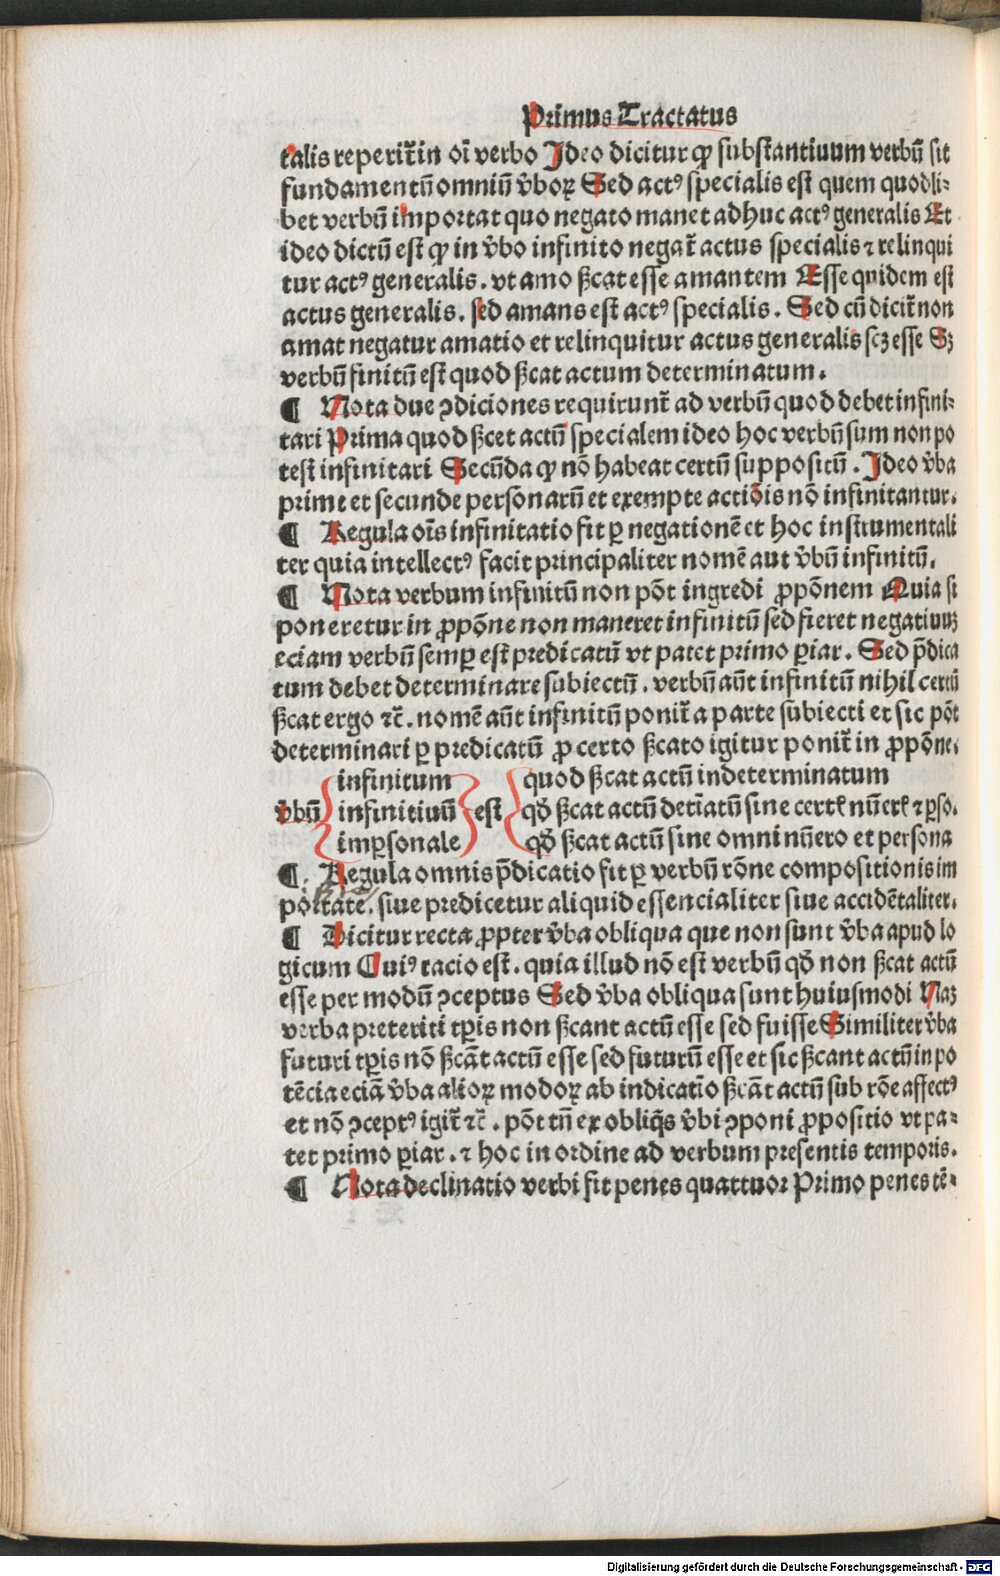 Primus Tractatus
talis reperit̄ in oī verbo Ideo dicitur ꝙ substantiuum verbū sit
fundamentū omniū v̄boꝝ Sed actꝰ specialis est quem quodli⸗
bet verbū importat quo negato manet adhuc actꝰ generalis Et
ideo dictū est ꝙ in v̄bo infinito negat̄ actus specialis ⁊ relinqui
tur actꝰ generalis. vt amo ßcat esse amantem Esse quidem est
actus generalis. sed amans est actꝰ specialis. Sed cū dicit̄ non
amat negatur amatio et relinquitur actus generalis scꝫ esse Sꝫ
verbū finitū est quod ßcat actum determinatum.
¶ Nota due ꝯdiciones requirunt̄ ad verbū quod debet infini⸗
tari Prima quod ßcet actū specialem ideo hoc verbū sum non po
test infinitari Secūda ꝙ nō habeat certū suppositū. Ideo v̄ba
prime et secunde personarū et exempte actiōis nō infinitantur.
¶ Regula oīs infinitatio fit ꝑ negationē et hoc instrumentali
ter quia intellectꝰ facit principaliter nomē aut v̄bū infinitū.
¶ Nota verbum infinitū non pōt ingredi ꝓpōnem Quia si
poneretur in ꝓpōne non maneret infinitū sed fieret negatiuuꝫ
eciam verbū semꝑ est predicatū vt patet primo ꝑiar. Sed p̄dica
tum debet determinare subiectū. verbū aūt infinitū nihil certū
ßcat ergo ⁊c̄. nomē aūt infinitū ponit̄ a parte subiecti et sic pōt
determinari ꝑ predicatū ꝓ certo ßcato igitur ponit̄ in ꝓpōne.
infinitum quod ßcat actū indeterminatum
v̄bū infinitiuū est qđ ßcat actū det̄iatū sine certꝭ nūerꝭ ⁊ ꝑso.
imꝑsonale qđ ßcat actū sine omni nūero et persona
¶ Regula omnis p̄dicatio fit ꝑ verbū rōne compositionis im
portate. siue predicetur aliquid essencialiter siue accidētaliter.
¶ Dicitur recta ꝓpter v̄ba obliqua que non sunt v̄ba apud lo
gicum Cuiꝰ racio est. quia illud nō est verbū qđ non ßcat actū
esse per modū ꝯceptus Sed v̄ba obliqua sunt huiusmodi Naꝫ
verba preteriti tꝑis non ßcant actū esse sed fuisse Similiter v̄ba
futuri tꝑis nō ßcāt actū esse sed futurū esse et sic ßcant actū in po
tēcia eciā v̄ba alioꝝ modoꝝ ab indicatīo ßcāt actū sub rōe affectꝰ
et nō ꝯceptꝰ igit̄ ⁊c̄. pōt tn̄ ex obliq̄s v̄bi ꝯponi ꝓpositio vt pa⸗
tet primo ꝑiar. ⁊ hoc in ordine ad verbum presentis temporis.
¶ Nota declinatio verbi fit penes quattuor Primo penes tē⸗
Digitalisierung gefördert durch die Deutsche Forschungsgemeinschaft - DFG